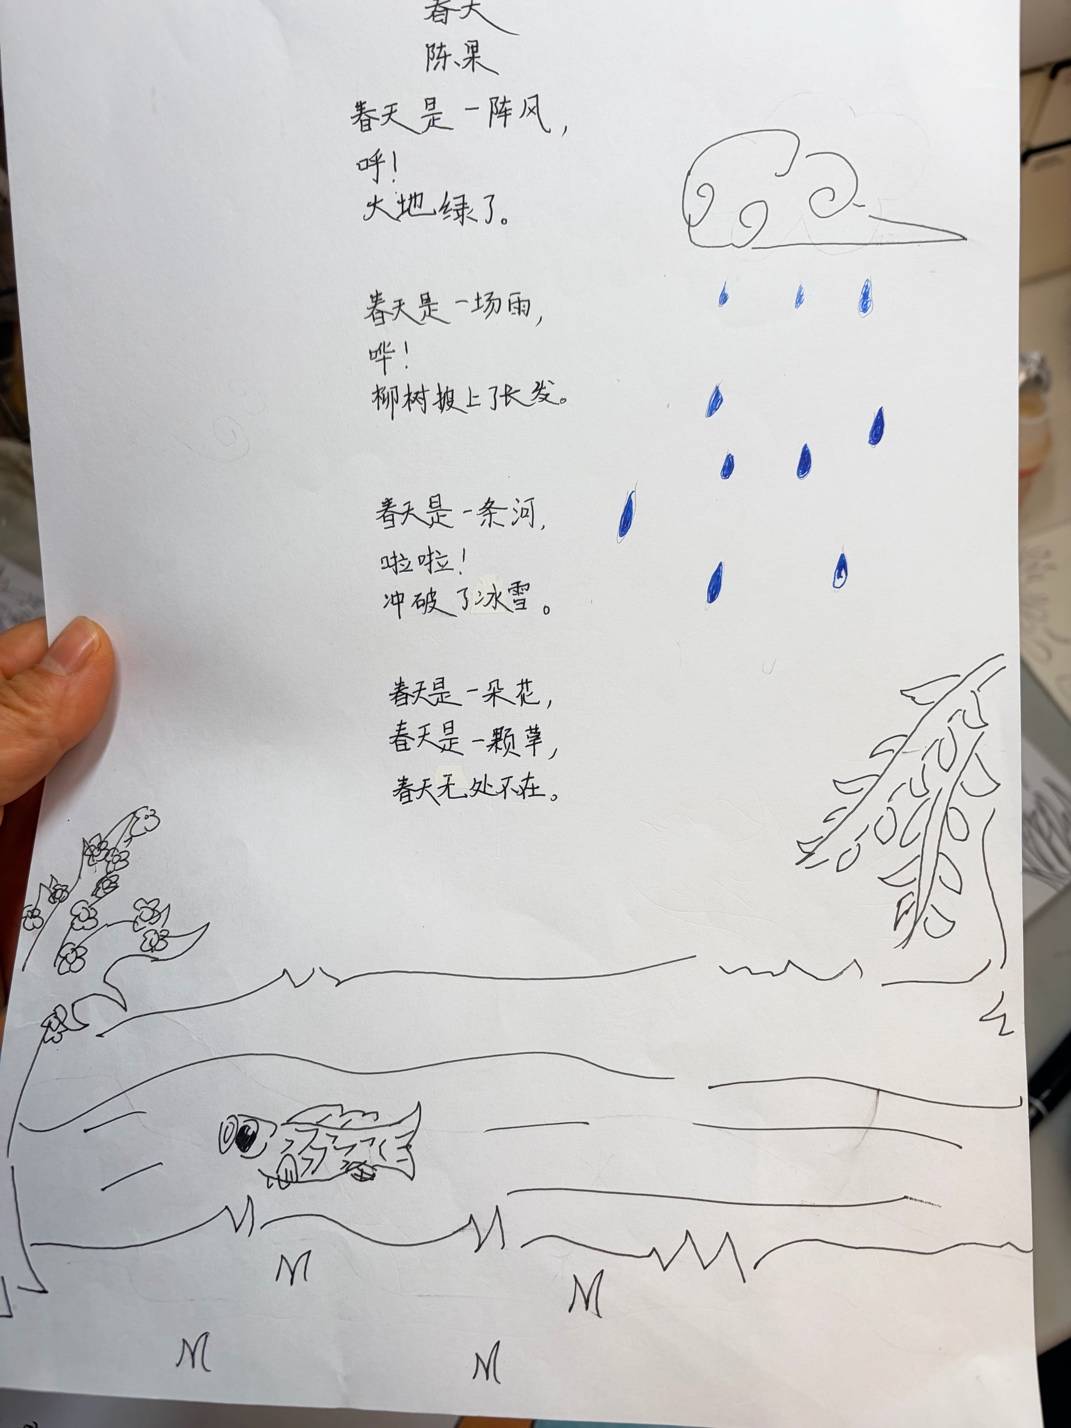 春天
陈果
春天是一阵风，
呼！
大地绿了。
春天是一场雨，
哗！
柳树披上了长发。
春天是一条河，
啦啦！
冲破了冰雪。
春天是一朵花，
春天是一颗草，
春天无处不在。